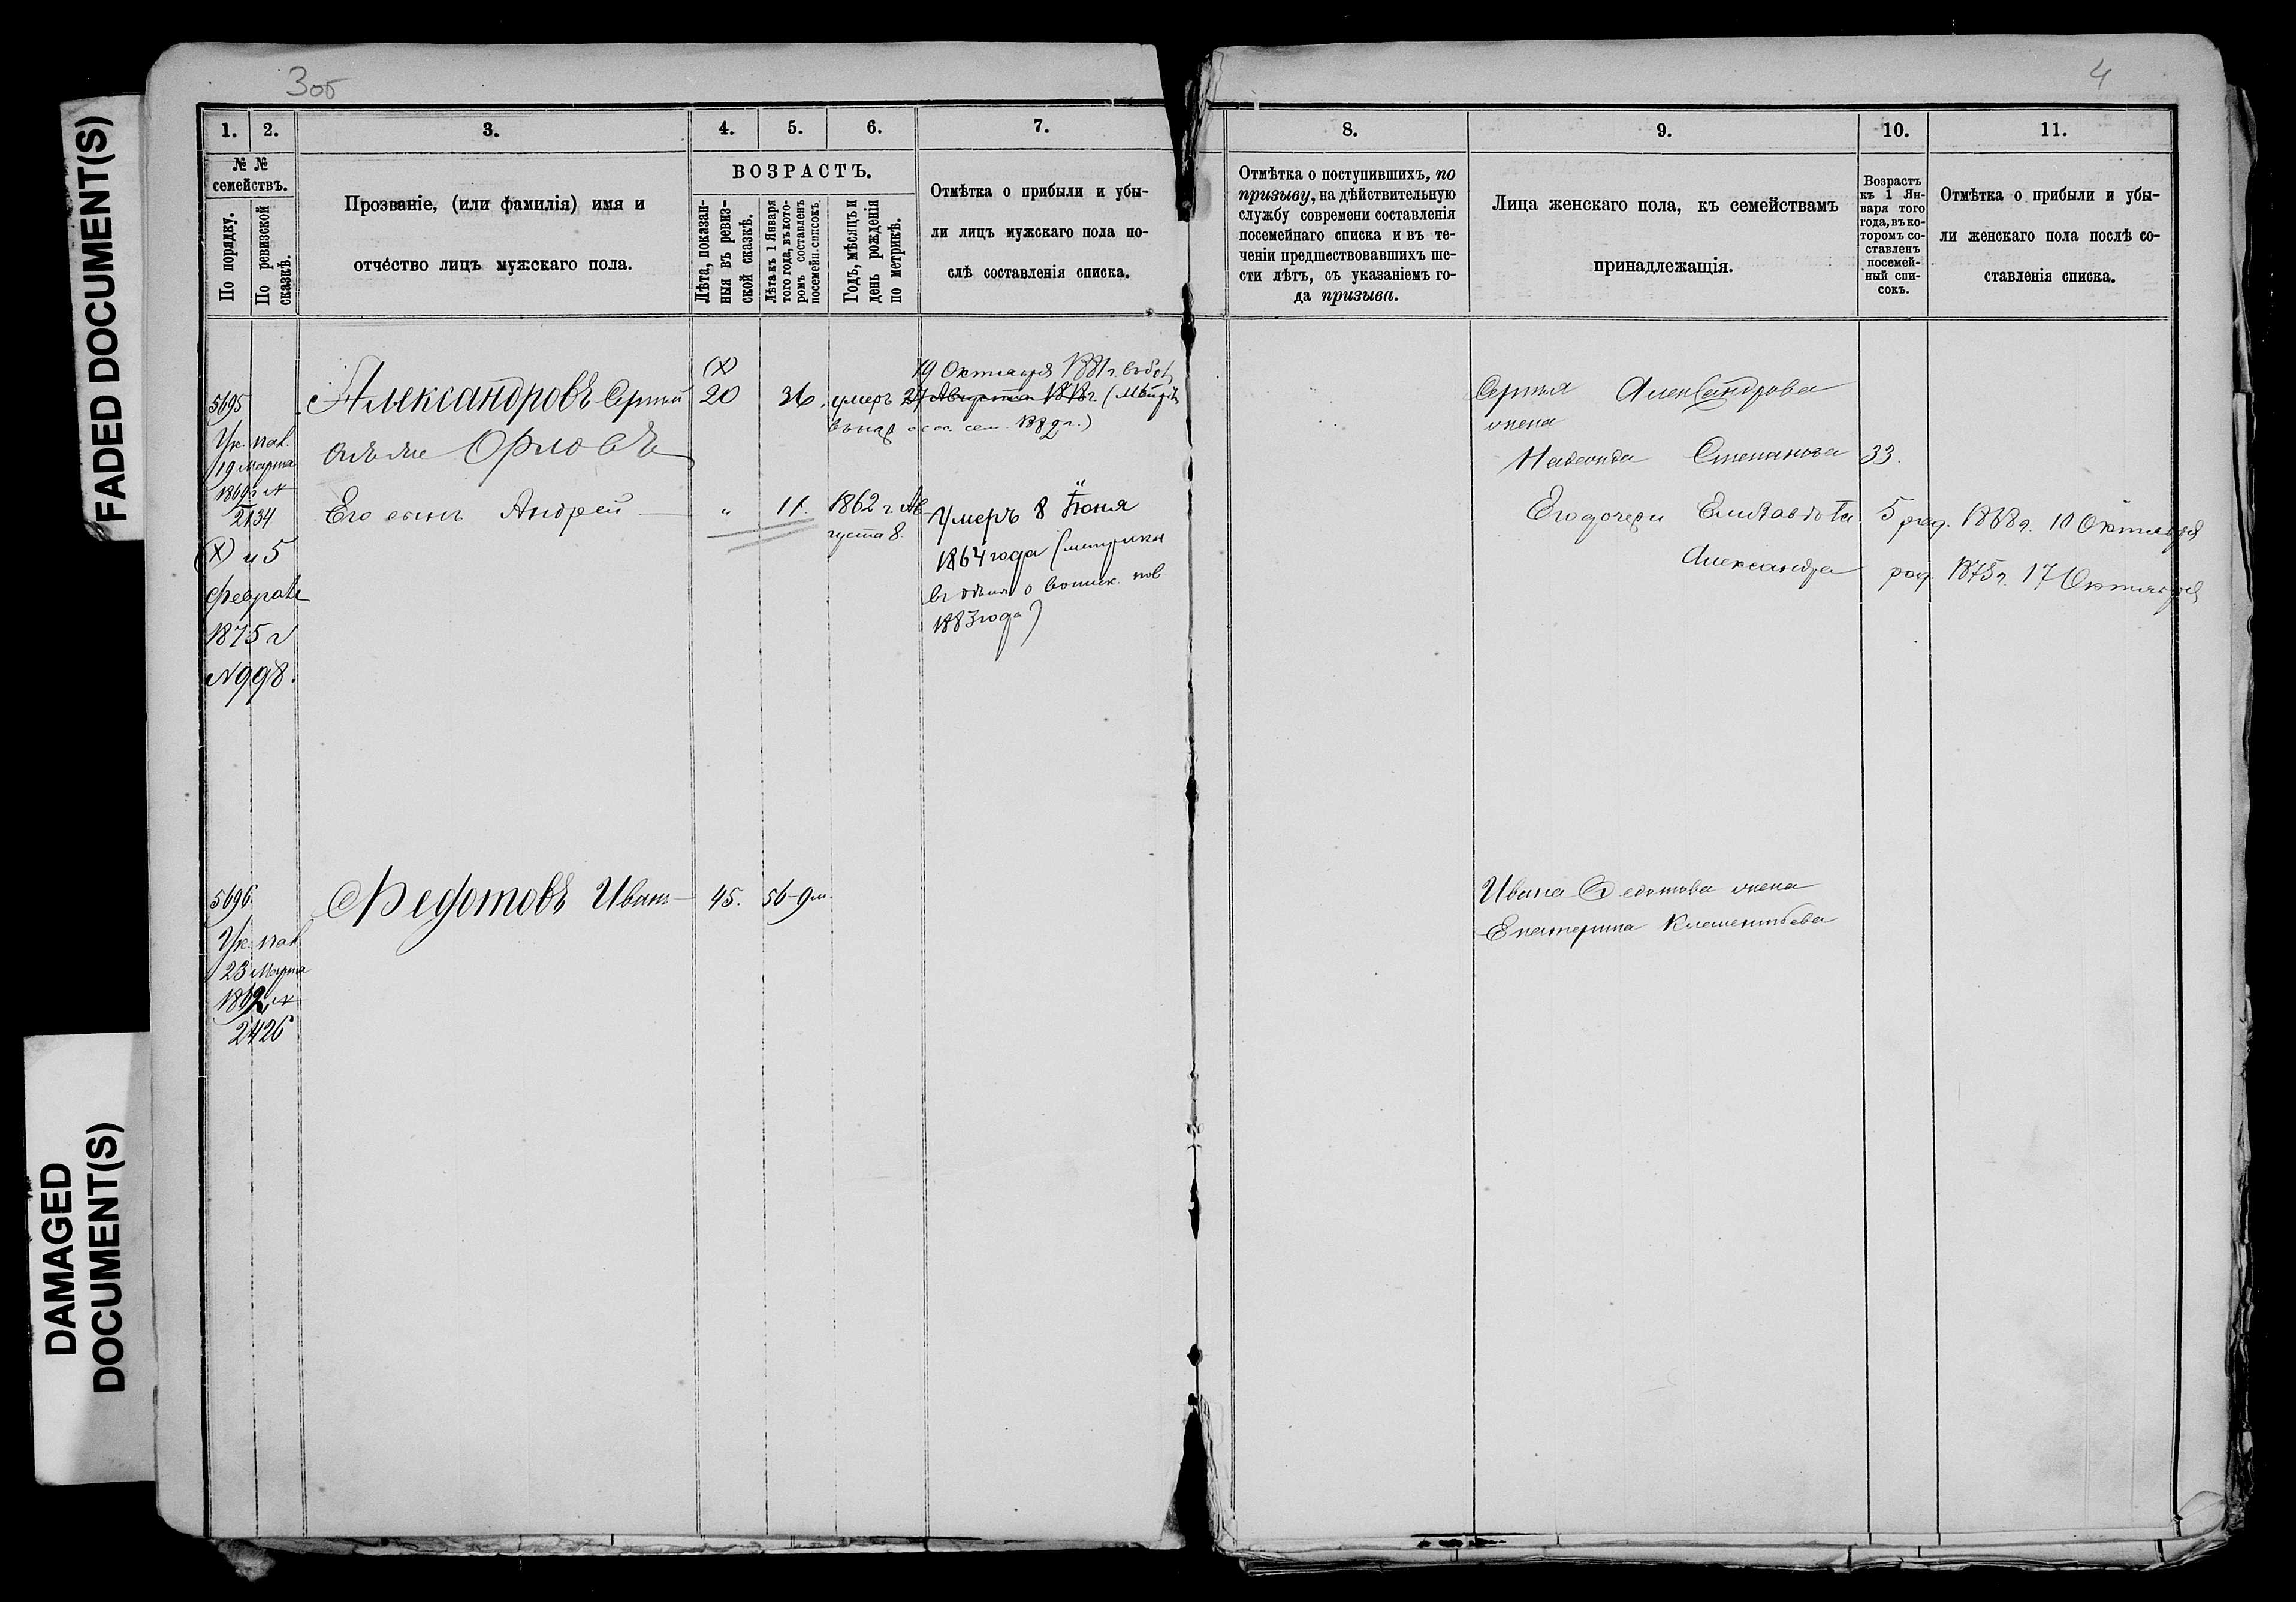 FADED DOCUMENT(S)
DAMAGED
DOCUMENT(S)
3об
4
1. 2. 3. 4. 5. 6. 7.
№ №
семействъ.
По порядку.
По ревизской
сказкѣ.
Прозваніе, (или фамилія) имя и
отчество лицъ мужскаго пола.
ВОЗРАСТЪ.
Лѣта, показан-
ныя въ ревиз-
ской сказкѣ.
Лѣта къ 1 Января
того года, въ кото-
ромъ составленъ
посемейн. списокъ.
Годъ, мѣсяцъ и
день рожденія
по метрикѣ.
Отмѣтка о прибыли и убы-
ли лицъ мужскаго пола по-
слѣ составленія списка.
5695
Ук. пал.
19 Марта
1869 г. №
2134
(X) и 5
Февраля
1875 г
№ 998.
Александровъ Сергѣй
онъ же Орловъ
(X)
20
36.
19 Октября 1881 г.
умеръ 27 Августа 1878 г.
1882 г.)
Его сынъ Андрей
"
11.
1862 г. Ав
густа 8.
Умеръ 8 Іюня
1864 года (метрика
въ дѣлѣ о воинск. пов.
1883 года)
5696
Ук. пал.
23 Марта
1862 №
2426
Федотовъ Иванъ
45.
56-9 м.
8. 9. 10. 11.
Отмѣтка о поступившихъ, по
призыву, на дѣйствительную
службу современи составленія
посемейнаго списка и въ те-
ченіи предшествовавшихъ ше-
сти лѣтъ, съ указаніемъ го-
да призыва.
Лица женскаго пола, къ семействамъ
принадлежащія.
Возрастъ
къ 1 Ян-
варя того
года, въ ко-
торомъ со-
ставленъ
посемей-
ный спи-
сокъ.
Отмѣтка о прибыли и убы-
ли женскаго пола послѣ со-
ставленія списка.
Сергѣя Александрова
жена
Надежда Степанова 33.
Его дочери Елизавета 5 род. 1868 г. 10 Октября
Александра род. 1875 г. 17 Октября
Ивана Федотова жена
Екатерина Клементьева